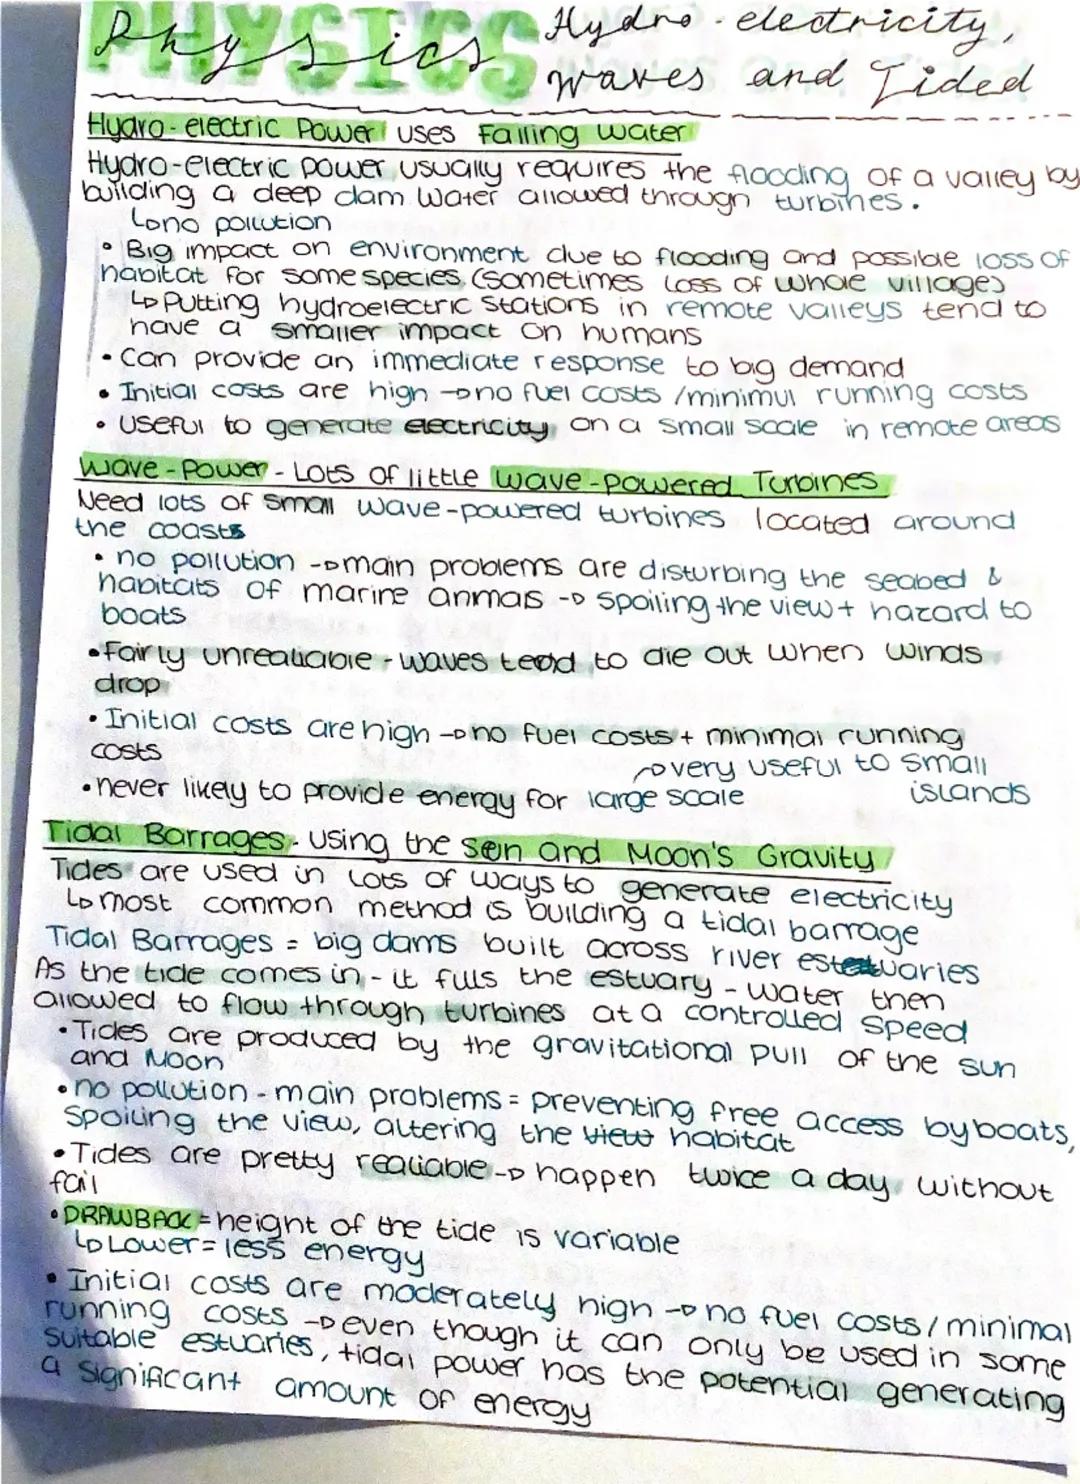 PHYSICS
Physics
Hydro-electricity,
waves and Tided
Hydro-electric Power uses Falling water
Hydro-electric power usually requires the flooding of a valley by
building a deep dam. Water allowed through turbines.
↳no pollution
• Big impact on environment due to flooding and possible loss of
habitat for some species (sometimes loss of whole villages)
↳Putting hydroelectric stations in remote valleys tend to
have a smaller impact on humans
• Can provide an immediate response to big demand
• Initial costs are high →no fuel costs /minimul running costs
• useful to generate electricity on a small scale in remote areas
Wave-Power - Lots of little Wave-powered Turbines
Need lots of small wave-powered turbines located around
the coasts
• no pollution →main problems are disturbing the seabed &
habitats of marine anmals → spoiling the view + hazard to
boats
• Fairly unrealiable - waves tend to die out when winds
drop
• Initial costs are high →no fuel costs + minimal running
costs
→very useful to small
islands
• never likely to provide energy for large scale
Tidal Barrages - using the sun and Moon's Gravity
Tides are used in lots of ways to generate electricity
↳most common method is building a tidal barrage
Tidal Barrages = big dams built across river estuaries
As the tide comes in - it fills the estuary - water then
allowed to flow through turbines at a controlled speed
• Tides are produced by the gravitational pull of the sun
and Moon
• no pollution - main problems = preventing free access by boats,
spoiling the view, altering the view habitat
• Tides are pretty realiable → happen twice a day without
fail
• DRAWBACK = height of the tide is variable
↳Lower = less energy
• Initial costs are moderately high → no fuel costs / minimal
running costs → even though it can only be used in some
suitable estuaries, tidal power has the potential generating
a significant amount of energy